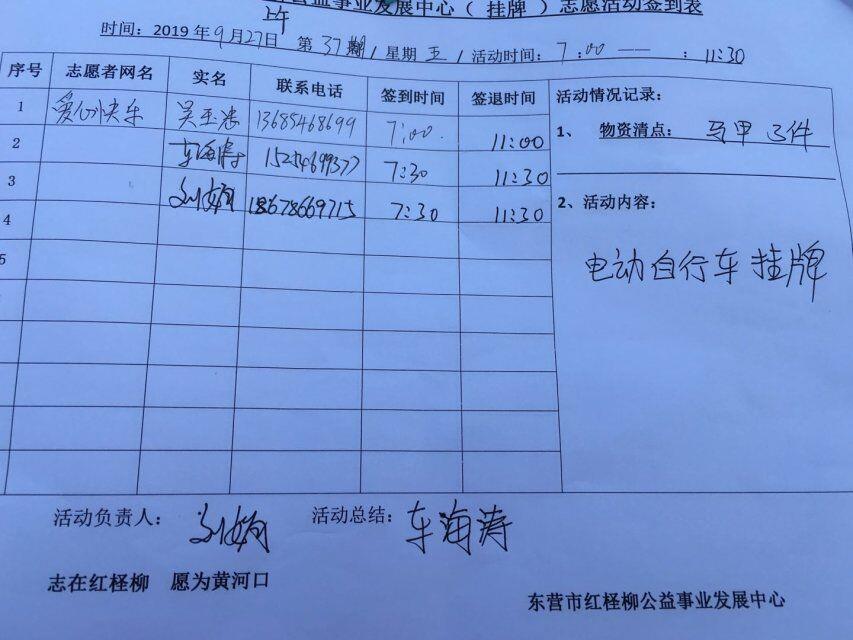 公益事业发展中心（ 挂牌 ）志愿活动签到表
上午
时间：2019年9月27日 第 37期/ 星期 五 / 活动时间：7：00 —— ：11:30
序号 志愿者网名 实名 联系电话 签到时间 签退时间 活动情况记录：
1 爱心快乐 吴玉 13685468699 7:00. 11:00
1、 物资清点： 马甲 3件
2 车海涛 15254699377 7:30 11:30
3 刘娟 18678669715 7:30 11:30
2、活动内容：
4
电动自行车挂牌
5
活动负责人： 刘娟 活动总结： 车海涛
志在红柽柳 愿为黄河口
东营市红柽柳公益事业发展中心